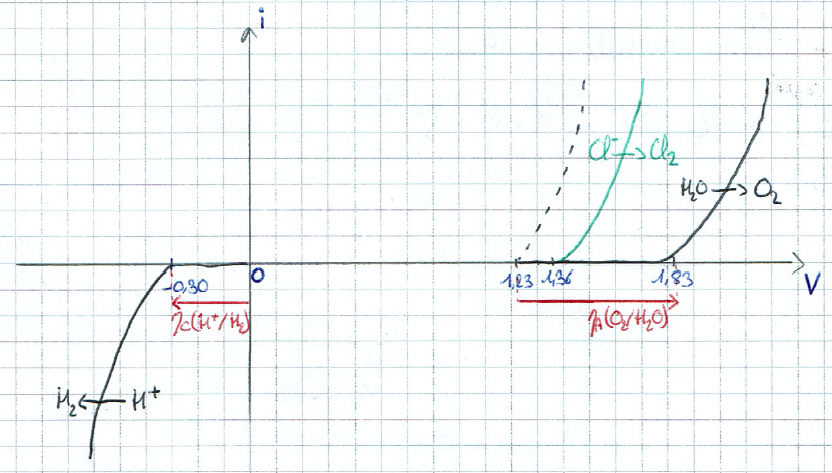 i
Cl⁻ → Cl₂
H₂O → O₂
-0,30
0
1,23
1,36
1,83
V
ηc(H⁺/H₂)
ηA(O₂/H₂O)
H₂ ← H⁺